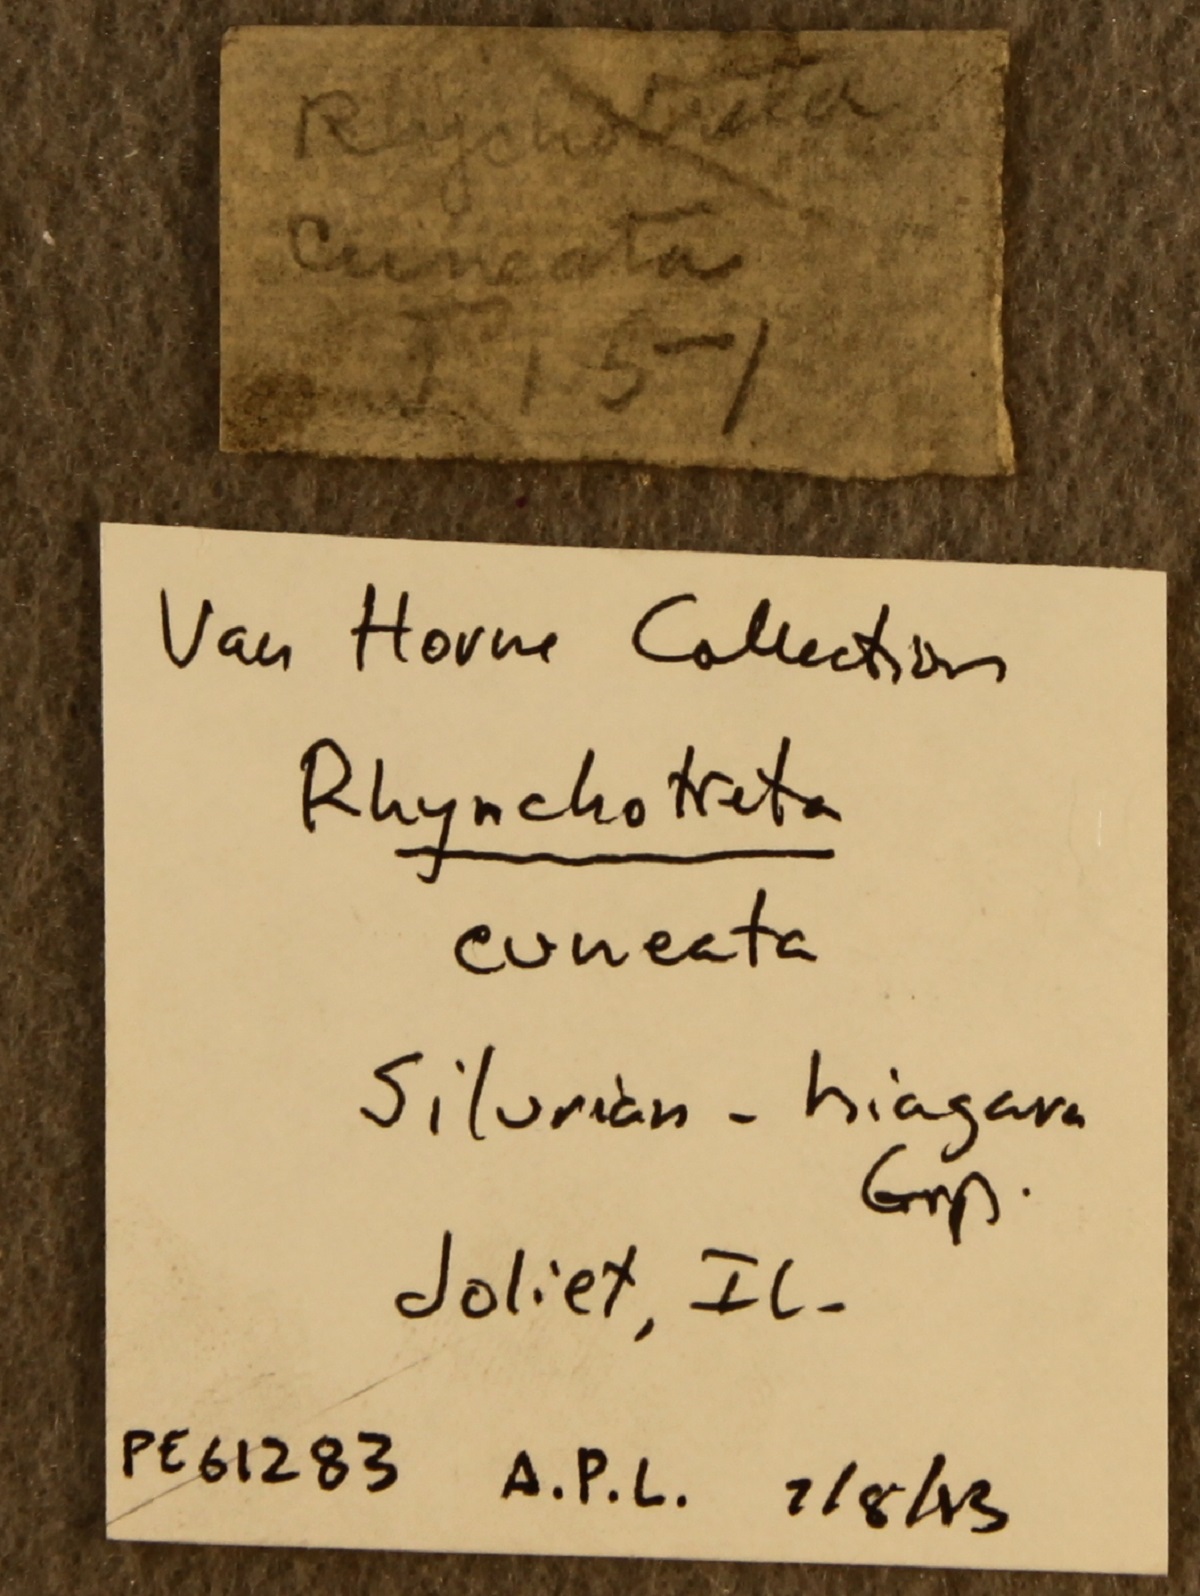 Rhychotreta
cuneata
T 151
Van Horne Collection
Rhynchotreta
cuneata
Silurian - Niagara
Grp.
Joliet, IL.
PE61283 A.P.L. 7/8/83